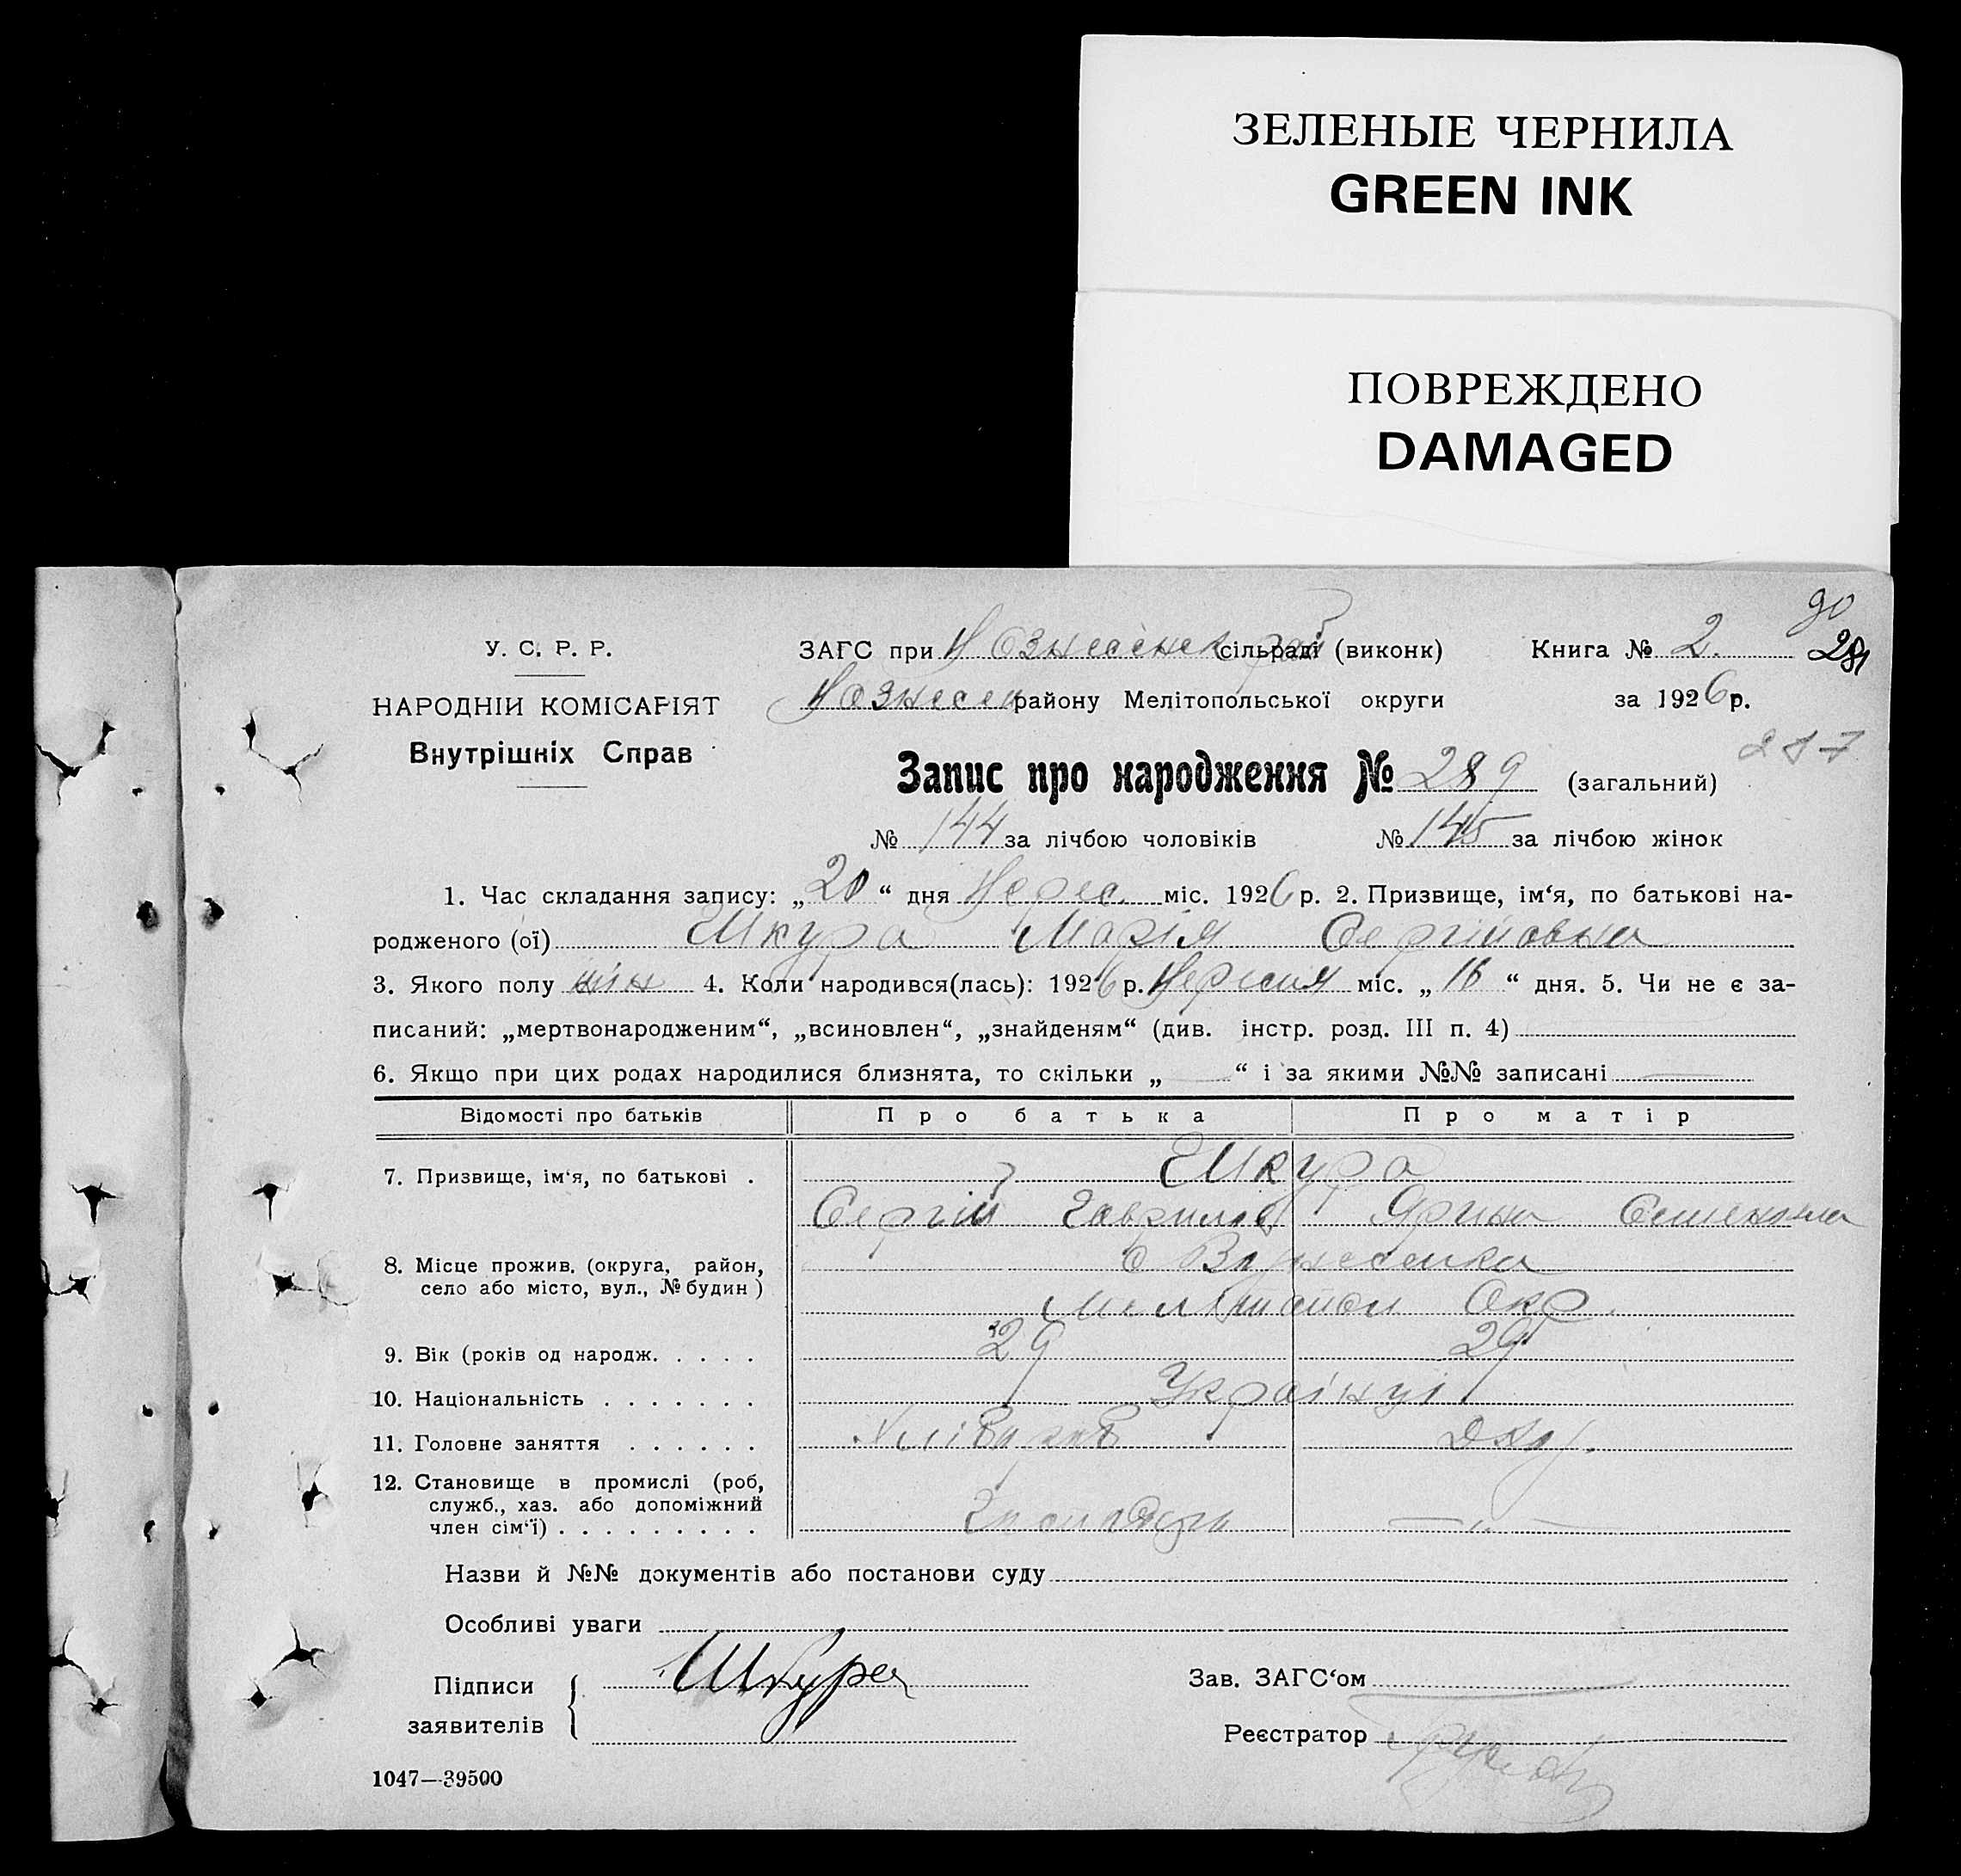 ЗЕЛЕНЫЕ ЧЕРНИЛА
GREEN INK
ПОВРЕЖДЕНО
DAMAGED
90
У. С. Р. Р.
ЗАГС при Вознесенск рай сільраді (виконк) Книга № 2. 281
НАРОДНІЙ КОМІСАРІЯТ
Вознесен району Мелітопольської округи за 1926 р.
Внутрішніх Справ
287
Запис про народження № 289 (загальний)
№ 144 за лічбою чоловіків № 145 за лічбою жінок
1. Час складання запису: „20“ дня Верес. міс. 1926 р. 2. Призвище, ім‘я, по батькові на-
родженого (ої) Шкура Марія Сергійовна
3. Якого полу жін 4. Коли народився(лась): 1926 р. Вересня міс. „16“ дня. 5. Чи не є за-
писаний: „мертвонародженим“, „всиновлен“, „знайденям“ (див. інстр. розд. III п. 4)
6. Якщо при цих родах народилися близнята, то скільки „—“ і за якими №№ записані —
Відомості про батьків Про батька Про матір
7. Призвище, ім‘я, по батькові . Шкура
Сергій Гаврилов Ярина Семеновна
8. Місце прожив. (округа, район, с Вознесенка
село або місто, вул., № будин ) Мелітопол Окр.
9. Вік (років од народж. . . . . 29 29
10. Національність . . . . . . . Українці
11. Головне заняття . . . . . . Хлібороб
12. Становище в промислі (роб,
служб., хаз. або допоміжний
член сім‘ї) . . . . . . . . . —„—
Назви й №№ документів або постанови суду
Особливі уваги
Підписи Шкура Зав. ЗАГС‘ом
заявителів Реєстратор
1047—39500